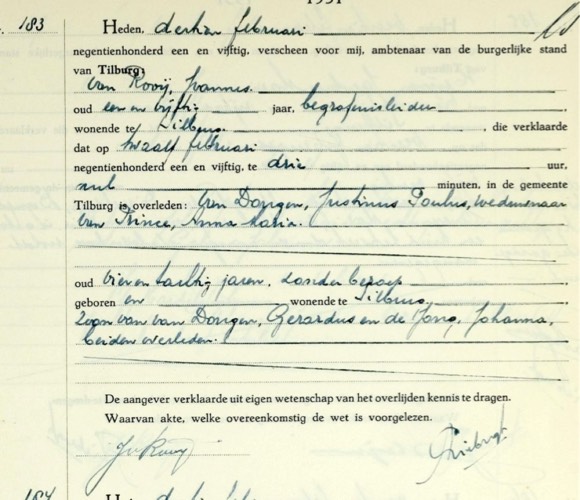 1951
183 Heden, dertien februari
negentienhonderd een en vijftig, verscheen voor mij, ambtenaar van de burgerlijke stand
van Tilburg:
van Rooij, Joannes.
oud een en vijftig jaar, begrafenisleider
wonende te Tilburg. , die verklaarde
dat op twaalf februari
negentienhonderd een en vijftig, te drie uur,
nul minuten, in de gemeente
Tilburg is overleden: van Dongen, Justinus Paulus, weduwnaar
van Prince, Anna Maria.
oud vier en tachtig jaren, zonder beroep
geboren en wonende te Tilburg,
zoon van van Dongen, Gerardus en de Jong, Johanna,
beiden overleden.
De aangever verklaarde uit eigen wetenschap van het overlijden kennis te dragen.
Waarvan akte, welke overeenkomstig de wet is voorgelezen.
JvRooij
184 Heden, dertien februari